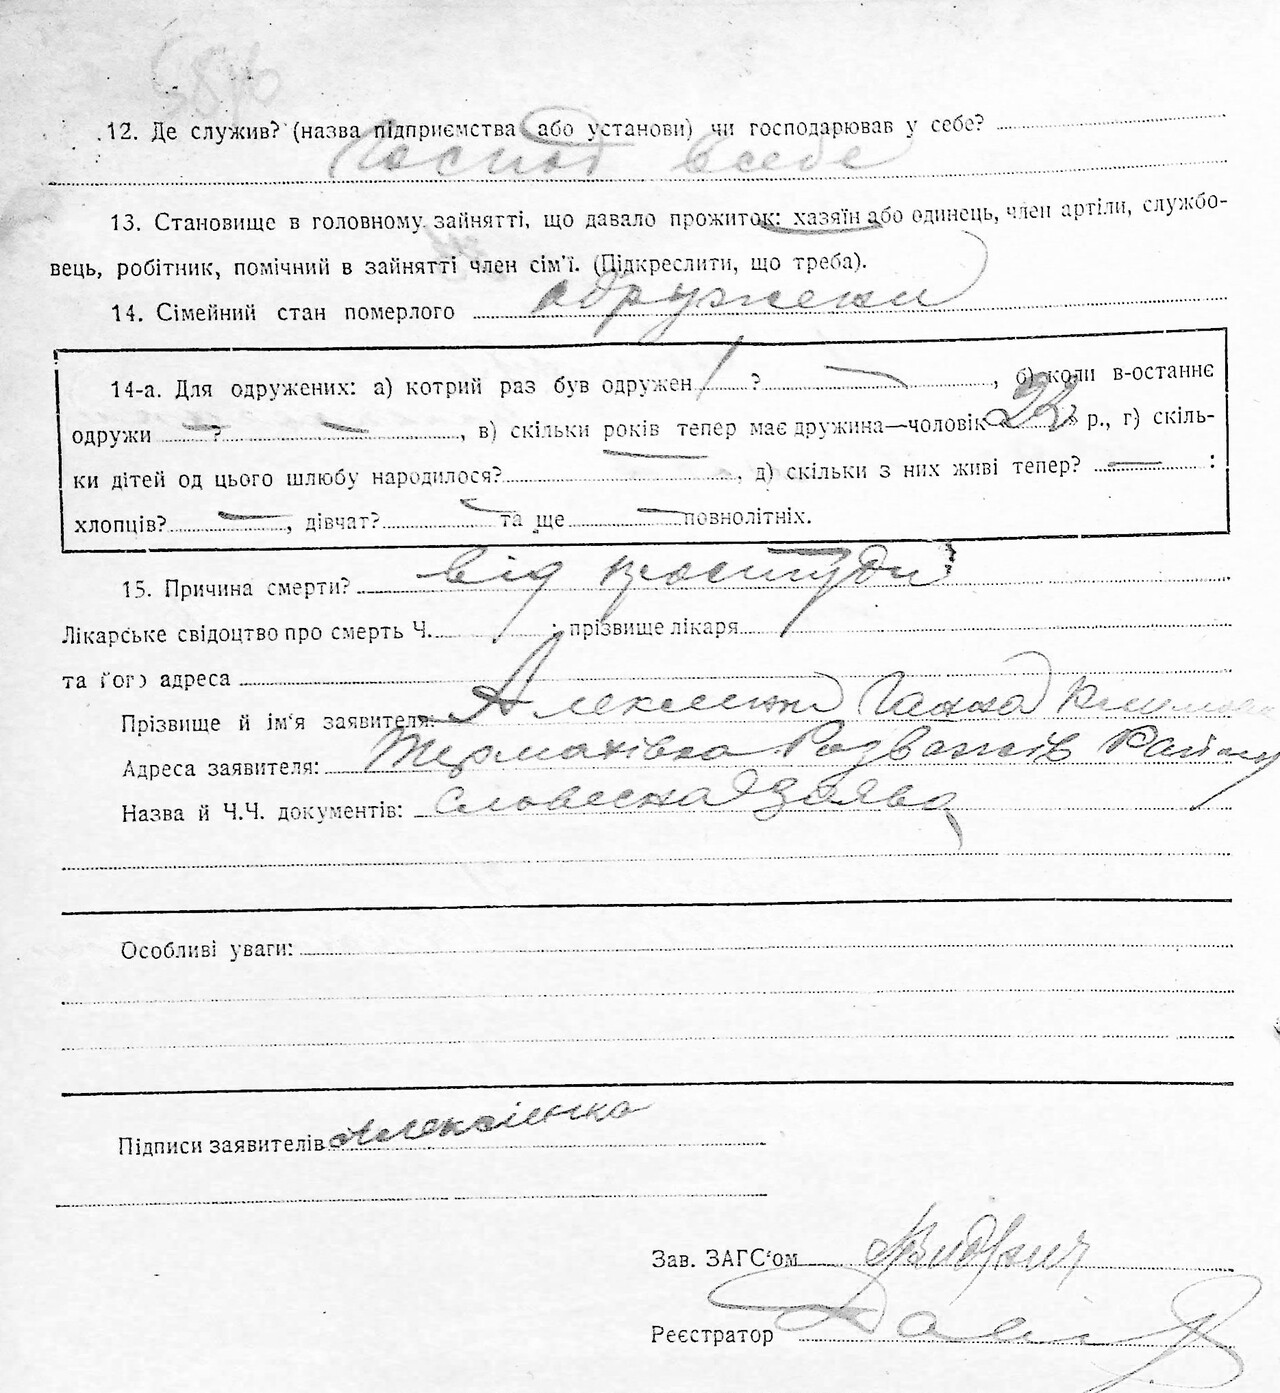 12. Де служив? (назва підприємства або установи) чи господарював у себе?
Господ в себе
13. Становище в головному зайнятті, що давало прожиток: хазяїн або одинець, член артіли, службо-
вець, робітник, помічний в зайнятті член сім'ї. (Підкреслити, що треба).
14. Сімейний стан померлого одружени
14-а. Для одружених: а) котрий раз був одружен 1 ? —, б) коли в-останнє
одружи — ? —, в) скільки років тепер має дружина—чоловік р., г) скіль-
ки дітей од цього шлюбу народилося? —, д) скільки з них живі тепер? — :
хлопців? —, дівчат? — та ще — повнолітніх.
15. Причина смерти? від простуди
Лікарське свідоцтво про смерть Ч. ; прізвище лікаря
та його адреса
Прізвище й ім'я заявителя: Ганна
Адреса заявителя: Термахівка Розважів Району
Назва й Ч.Ч. документів: словесна заява
Особливі уваги:
Підписи заявителів Алексієнко
Зав. ЗАГС'ом
Реєстратор